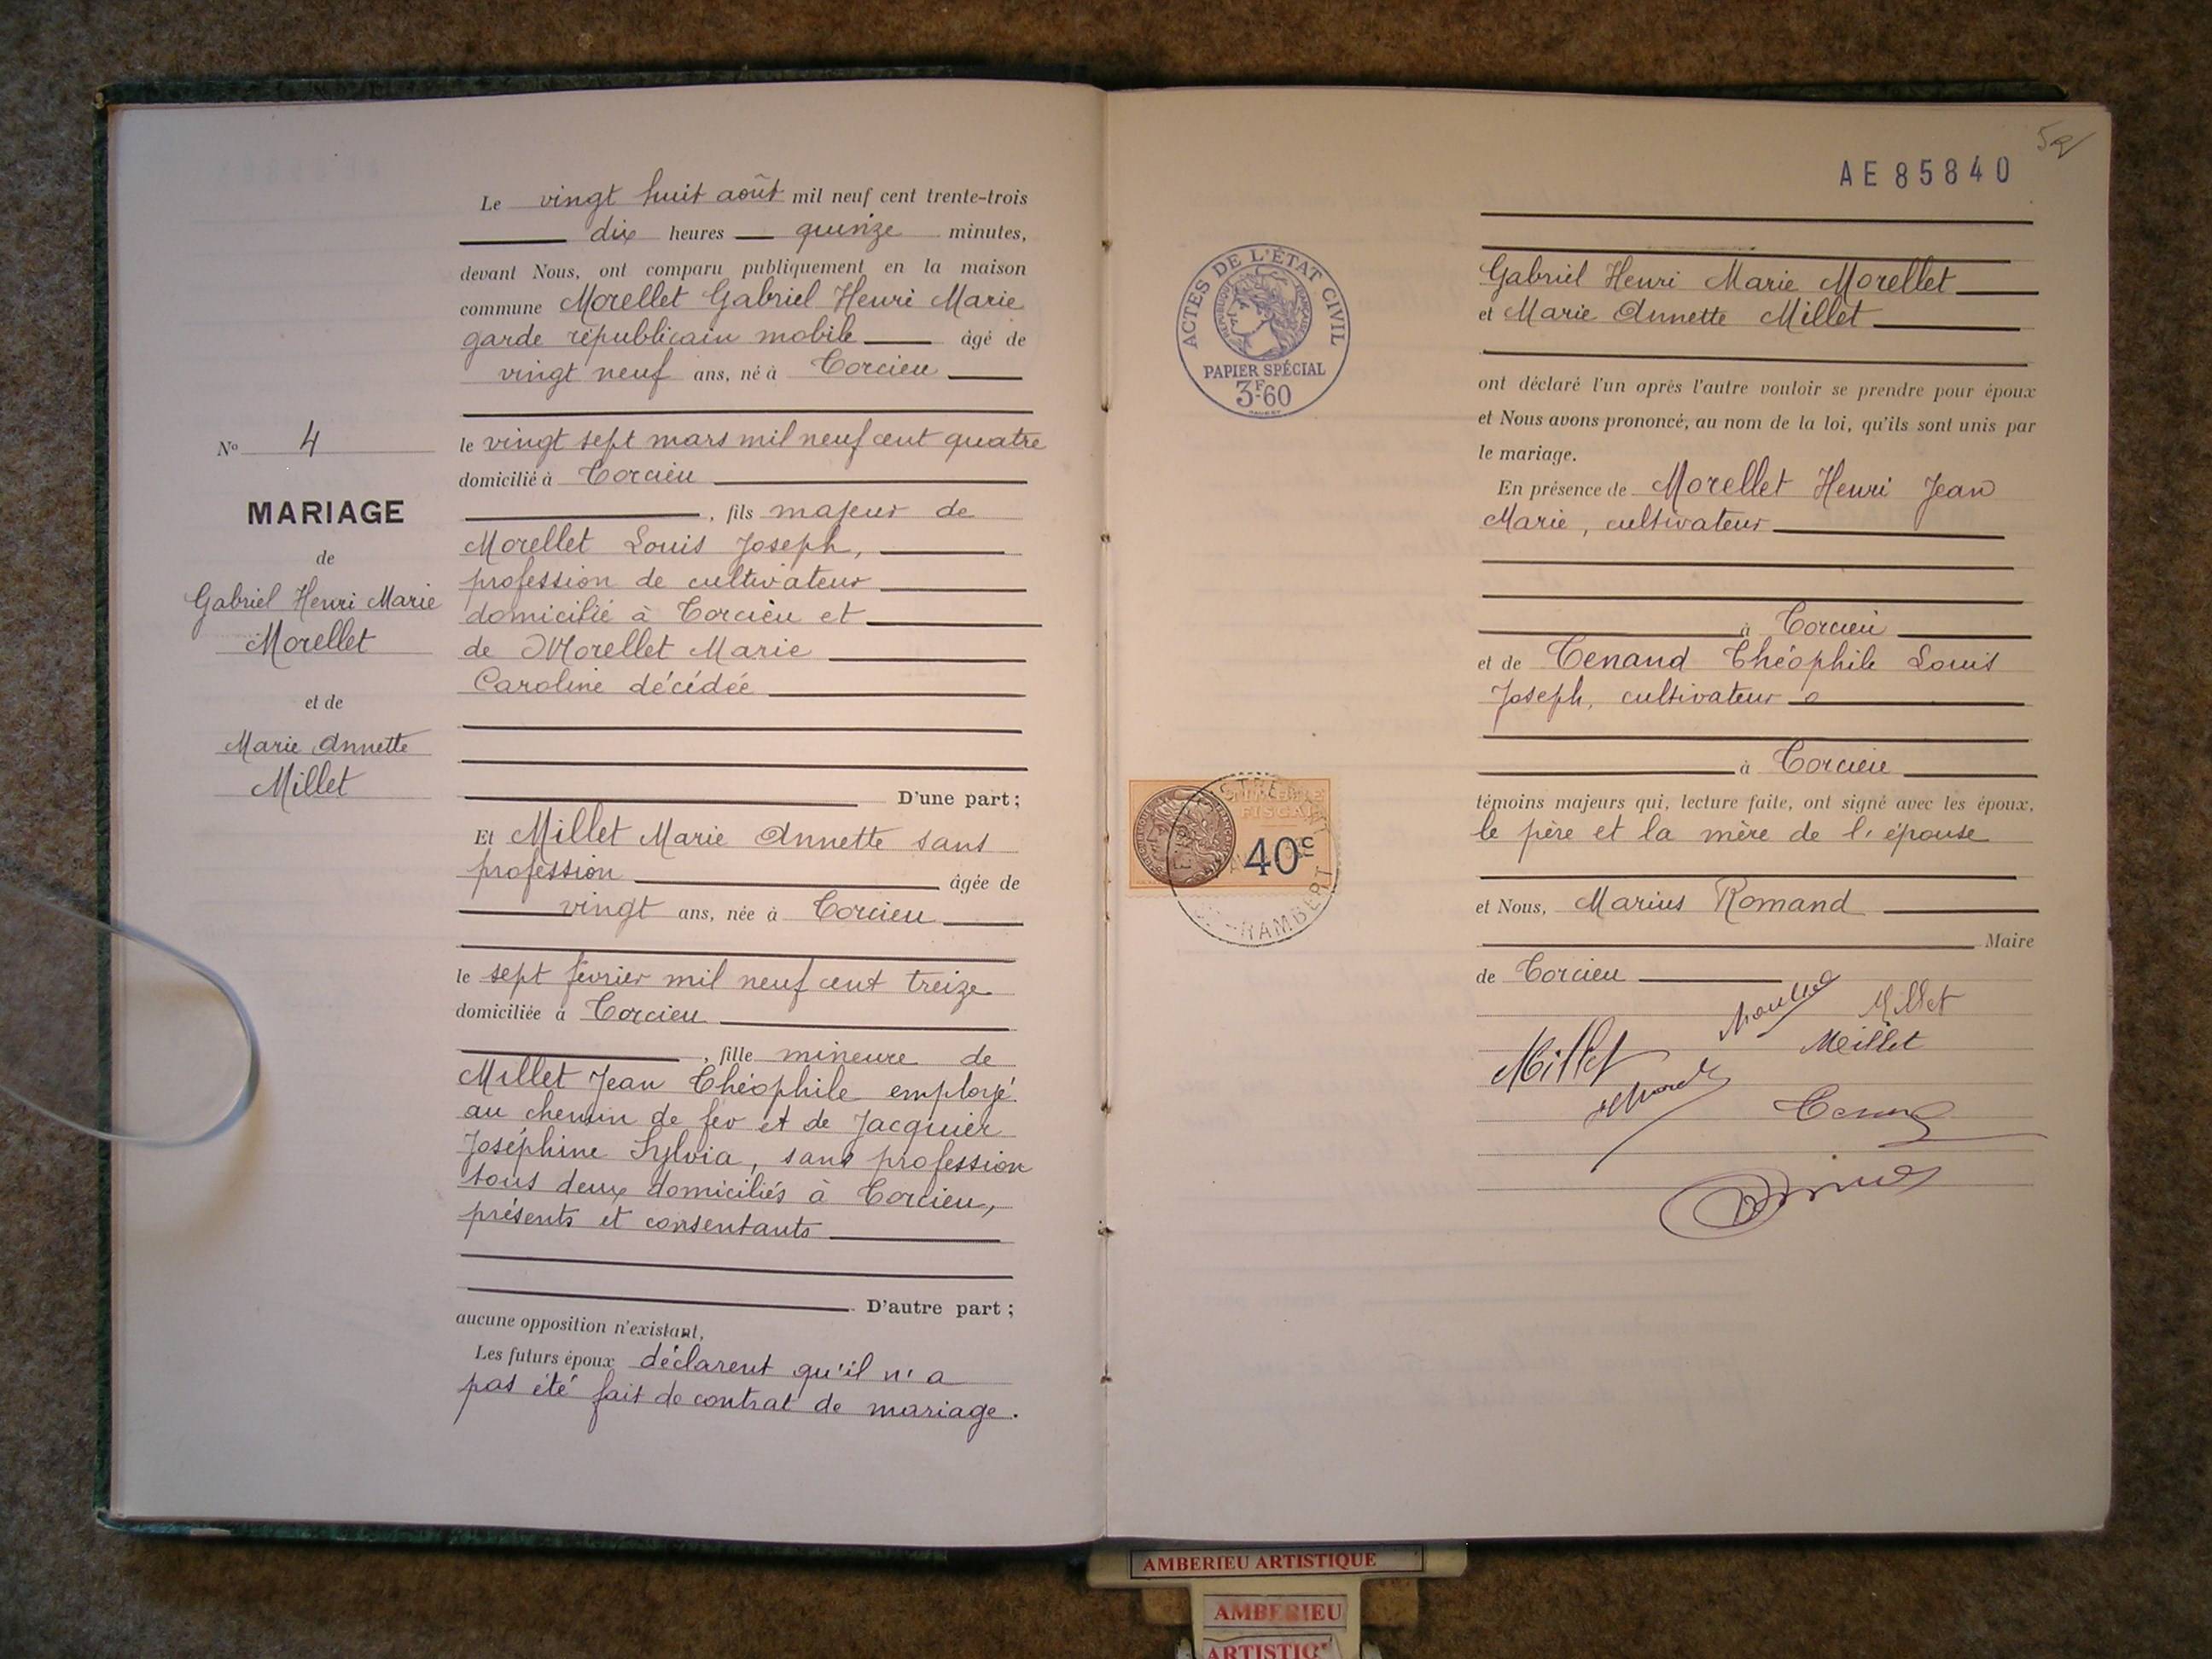 Le vingt huit août mil neuf cent trente-trois
dix heures quinze minutes,
devant Nous, ont comparu publiquement en la maison
commune Morellet Gabriel Henri Marie
garde républicain mobile âgé de
vingt neuf ans, né à Torcieu
le vingt sept mars mil neuf cent quatre
domicilié à Torcieu
, fils majeur de
Morellet Louis Joseph,
profession de cultivateur
domicilié à Torcieu et
de Morellet Marie
Caroline décédée
D'une part ;
Et Millet Marie Annette sans
profession âgée de
vingt ans, née à Torcieu
le sept février mil neuf cent treize
domiciliée à Torcieu
, fille mineure de
Millet Jean Théophile employé
au chemin de fer et de Jacquier
Joséphine Sylvia, sans profession
tous deux domiciliés à Torcieu,
présents et consentants
D'autre part ;
aucune opposition n'existant,
Les futurs époux déclarent qu'il n'a
pas été fait de contrat de mariage.
No 4
MARIAGE
de
Gabriel Henri Marie
Morellet
et de
Marie Annette
Millet
52
AE 85840
ACTES DE L'ÉTAT CIVIL
RÉPUBLIQUE FRANÇAISE
PAPIER SPÉCIAL
3F60
TIMBRE
FISCAL
40c
RAMBERT
Gabriel Henri Marie Morellet
et Marie Annette Millet
ont déclaré l'un après l'autre vouloir se prendre pour époux
et Nous avons prononcé, au nom de la loi, qu'ils sont unis par
le mariage.
En présence de Morellet Henri Jean
Marie, cultivateur
à Torcieu
et de Tenand Théophile Louis
Joseph, cultivateur
à Torcieu
témoins majeurs qui, lecture faite, ont signé avec les époux,
le père et la mère de l'épouse
et Nous, Marius Romand
Maire
de Torcieu
Millet
Millet
Millet
AMBERIEU ARTISTIQUE
AMBERIEU
ARTISTIQ